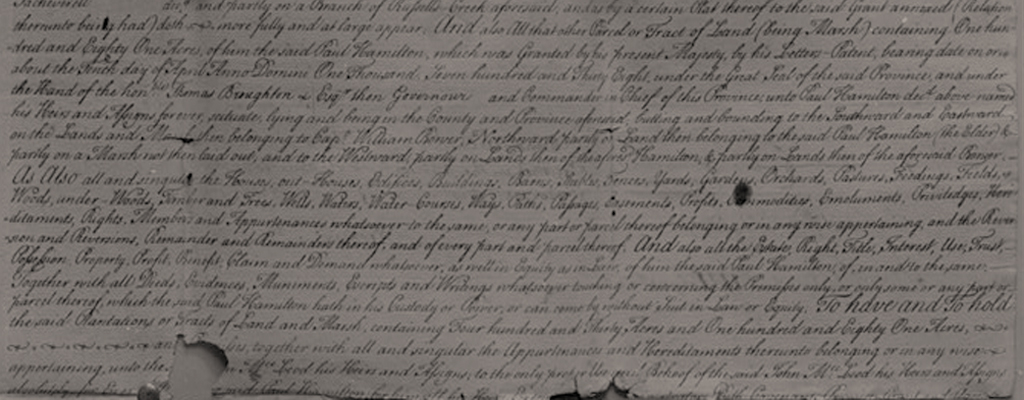 decd. and partly on a Branch of Russells Creek aforesaid, and as by a certain Plat thereof to the said Grant annexed (Relation
thereunto being had) doth more fully and at large appear. And also All that other Parcel or Tract of Land (being Marsh) containing One hun-
dred and Eighty One Acres, of him the said Paul Hamilton, which was Granted by his present Majesty, by his Letters Patent, bearing date on or
about the Tenth day of April Anno Domini One Thousand, Seven hundred and Thirty Eight, under the Great Seal of the said Province, and under
the Hand of the honble Thomas Broughton Esqr. then Governour and Commander in Chief of this Province, unto Paul Hamilton decd. above named
his Heirs and Assigns forever, situate, lying and being in the County and Province aforesaid, butting and bounding to the Southward and Eastward
on the Lands and then belonging to Capt. William Bower, Northward partly on Land then belonging to the said Paul Hamilton (the Elder) &
partly on a Marsh not then laid out, and to the Westward, partly on Lands then of the aforesd. Hamilton, & partly on Lands then of the aforesaid Bower.
As Also all and singular the Houses, out-Houses, Edifices, Buildings, Barns, Stables, Fences, Yards, Gardens, Orchards, Pastures, Feedings, Fields,
Woods, under-Woods, Timber and Trees, Wells, Waters, Water-Courses, Ways, Paths, Passages, Easements, Profits, Commodities, Emoluments, Priviledges, Here
ditaments, Rights, Members and Appurtenances whatsoever to the same, or any part or parcel thereof belonging or in any wise appertaining, and the Rever
sion and Reversions, Remainder and Remainders thereof, and of every part and parcel thereof. And also all the Estate, Right, Title, Interest, Use, Trust,
Possession, Property, Profit, Benefit, Claim and Demand whatsoever, as well in Equity as in Law, of him the said Paul Hamilton, of, in and to the same;
Together with all Deeds, Evidences, Muniments, Escripts and Writings whatsoever touching or concerning the Premises only, or only some or any part or
parcel thereof, which the said Paul Hamilton hath in his Custody or Power, or can come by without Suit in Law or Equity. To have and To hold
the said Plantations or Tracts of Land and Marsh, containing Four hundred and Thirty Acres and One hundred and Eighty One Acres,
together with all and singular the Appurtenances and Hereditaments thereunto belonging or in any wise
appertaining, unto the Leod his Heirs and Assigns; to the only proper Use and Behoof of the said John Mc Leod his Heirs and Assigns